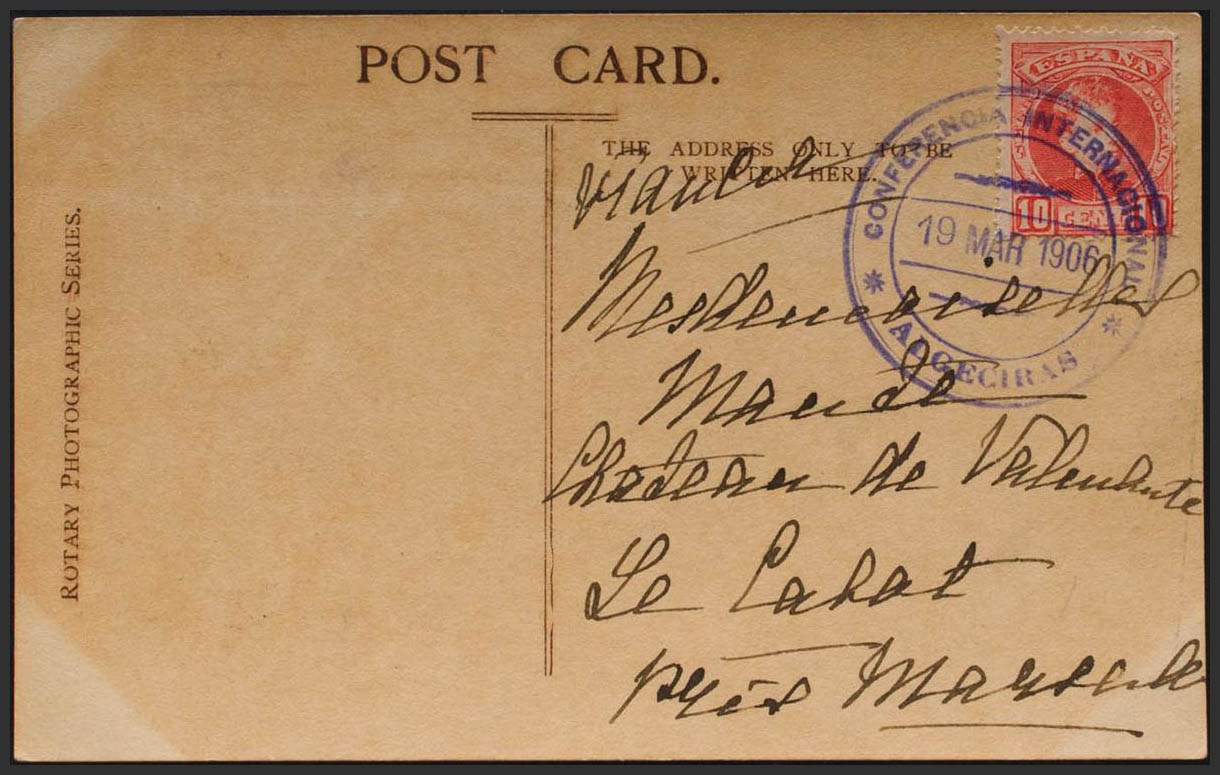 POST CARD.
THE ADDRESS ONLY TO BE
WRITTEN HERE.
ROTARY PHOTOGRAPHIC SERIES.
ESPAÑA
10 CEN
CONFERENCIA INTERNACIONAL
19 MAR 1906
ALGECIRAS
Mesdemoiselles
Château de
Le Cabot
près Marseille